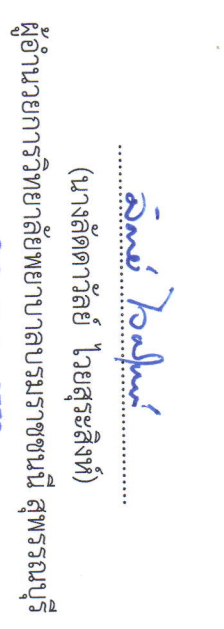 (นางลัดดาวัลย์ ไวยสุระสิงห์)
ผู้อำนวยการวิทยาลัยพยาบาลบรมราชชนนี สุพรรณบุรี